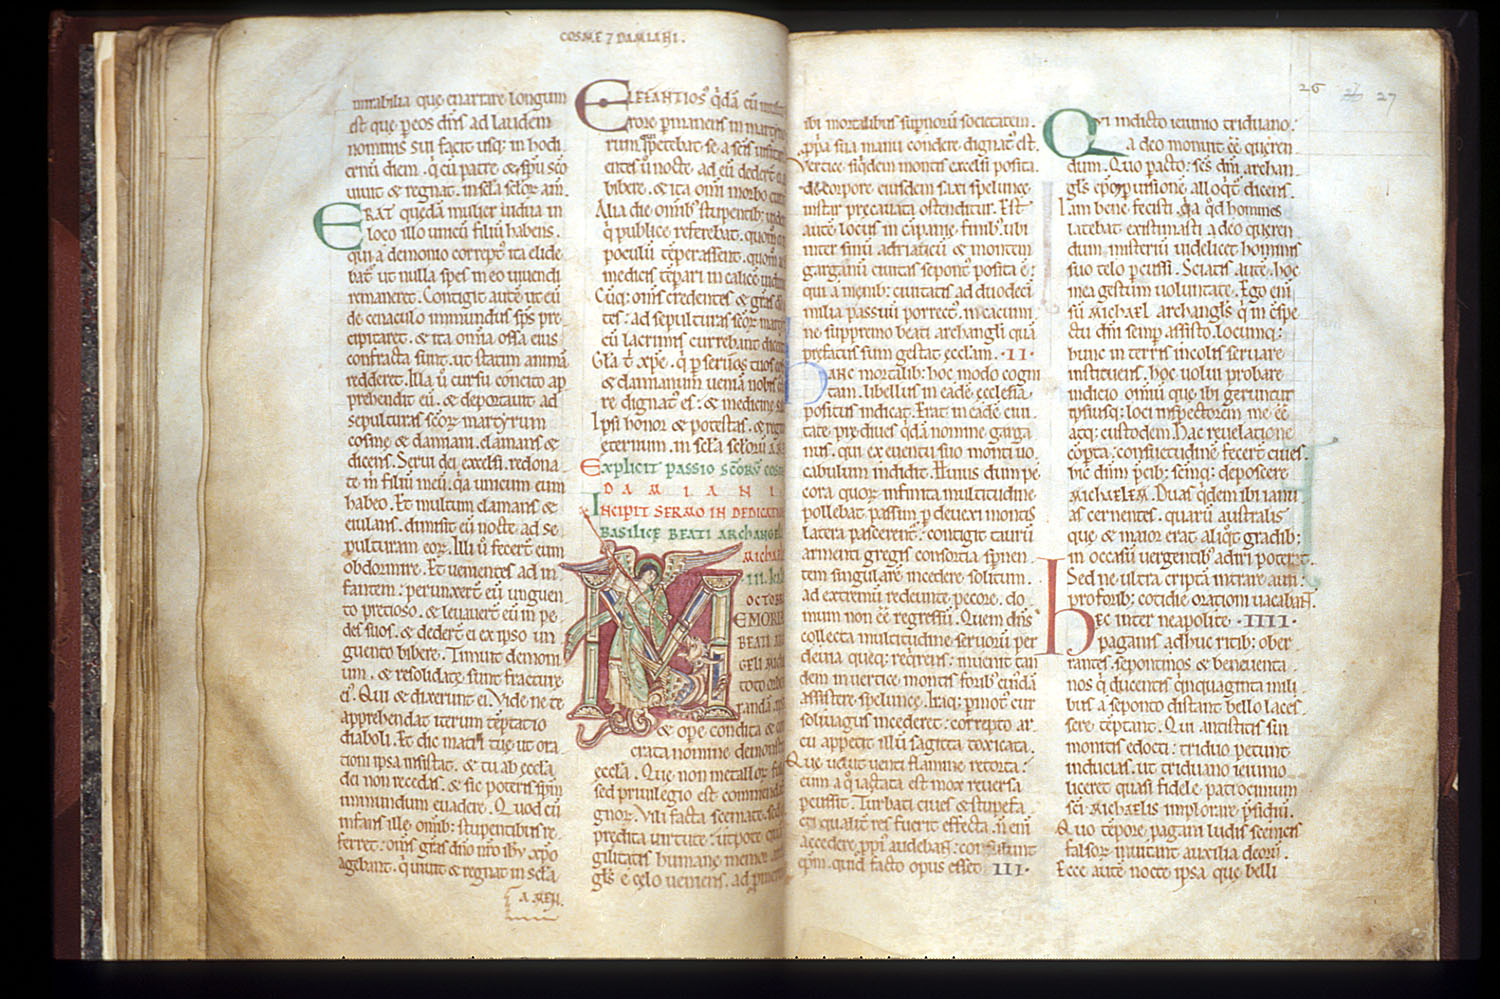 COSME ⁊ DAMIANI.
mirabilia que enarrare longum
est que p eos dn̄s ad laudem
nominis sui facit usq; in hodi
ernū diem . q̇ cū patre & sp̄u sc̄o
uiuit & regnat . in sc̄la sc̄loꝝ am̄.
ERAT quedā mulier uidua in
loco illo unicū filiū habens.
qui a demonio corrept᾿ ita elide
bat᾿ ut nulla spes in eo uiuendi
remaneret . Contigit autē ut eū
de cenaculo inmundus sp̄s pre
cipitaret . & ita omīa ossa eius
confracta sunt . ut statim animā
redderet . Illa ū cursu concito ap
prehendit eū . & deportauit ad
sepulturas sc̄oꝝ martyrum
cosme & damiani . clamans &
dicens . Serui dei excelsi . redona
te m̄ filiū meū . q̇a unicum eum
habeo . Et multum clamans &
eiulans . dimisit eū nocte ad se
pulturam eoꝝ . Illi ū fecer̄t eum
obdormire . Et uenientes ad in
fantem : perunxer̄t eū unguen
to precioso . & leuauer̄t eū in pe
des suos . & dedert̄ ei ex ipso un
guento bibere . Timuit demoni
um . & resolidate sunt fracture
ei᾿ . Qui & dixerunt ei . Vide ne te
apprehendat iterum tēptatio
diaboli . Et dic matri tue ut ora
tioni ipsa insistat . & tu ab eccl̄a
dei non recedas . & sic poteris sp̄m
inmundum euadere . Quod cū
infans ille omīb; stupentibus re
ferret : om̄s gr̄as dn̄o nr̄o ihū xp̄o
agebant . q̇ uiuit & regnat in sc̄la
AMEN.
ELEFANTIOS᾿ q̇dā cū in
rore p̄manens in martyrū
rum petebat se a sc̄is
entes ū nocte . ad eū dedert̄ ei
bibere . & ita om̄i morbo
Alia die omīb; stupentib;
q̇ publice referebat . quom̄
poculū tēperassent . quom̄
medicis tēpari in calice
Cūq; om̄s credentes & gr̄as
tes : ad sepulturas sc̄oꝝ
cū lacrimis currebant
Gl̄a t̄ xp̄e . q̇ p seruos tuos
& damianum ueniā nobis
re dignat᾿ es : & medicine
Ipsi honor & potestas . & regnū
eternum . in sc̄la sc̄loꝝ
Explicit passio sc̄orū cosme
DAMIANI
INCIPIT SERMO IN DEDICATIONE
BASILICĘ BEATI ARCHANGELI
MICHAEL
III. kal
OCTOBR
MEMORIĀ
BEATI AR
GELI MICH
toto orbe
randā
& ope condita & con
crata nomine demonstrat
ęccl̄a . Que non metalloꝝ
sed priuilegio est commendata
gnoꝝ . Vili facta scemate . sed
predita uirtute : utpote quā
gilitatis humane memor
gl̄s e cęlo ueniens . ad
26 27
ibi mortalibus sup̄noꝝ societatem .
p̄pa sua manu condere dignat᾿ est.
Vertice siq̇dem montis excelsi posita
de corpore eiusdem saxi spelunce
instar precauata ostenditur . Est
autē locus in cāpanie finib; . ubi
inter sinū adriaticū & montem
garganū ciuitas sepont᾿ posita ē :
qui a menib; ciuitatis ad duodeci
milia passuū porrect᾿ . in cacumi
ne suppremo beati archangl̄i quā
prefatus sum gestat eccl̄am . ·II·
Hanc mortalib; hoc modo cogni
tam . libellus in eadē ęcclesia
positus indicat . Erat in eadē ciui
tate predives q̇dā nomine garga
nus . qui ex euentu suo monti uo
cabulum indidit . Huius dum pe
cora quoꝝ infinita multitudine
pollebat passim p deuexi montis
latera pascerent᾿ : contigit taurū
armenti gregis consortia spernen
tem singularē incedere solitum .
ad extremū redeunte pecore . do
mum non ēē regressū . Quem dn̄s
collecta multitudine seruorū per
deuia queq; req̇rens : inuenit tan
dem in uertice montis forib; cui᾿dā
assistere spelunce . Itaq; p̄mot᾿ cur
soliuagus incederet : correpto ar
cu appetit illū sagitta toxicata .
Que uelut uenti flamine retorta :
eum a q̇ iactata est mox reuersa
percussit . Turbati ciues & stupefa
cti qualit᾿ res fuerit effecta . n̄ enī
accedere ppi᾿ audebant : consulunt
ep̄m . quid facto opus esset III·
Qui indicto ieiunio triduano .
a deo monuit ēē queren
dum . Quo pacto : sc̄s dn̄i archan
gl̄s ep̄m p uisione alloq̇t᾿ dicens.
Iam bene fecisti . q̇a q̇d homines
latebat existimasti a deo queren
dum misteriū uidelicet hominis
suo telo pcussi . Sciatis autē hoc
mea gestum uoluntate . Ego eni
sū Michael archangl̄s q̇ in cspe
ctu dn̄i semp assisto . Locumq;
hunc in terris incolis seruare
instituens . hoc uolui probare
indicio omniū que ibi geruntur
ipsiusq; loci inspectorem me ēē
atq; custodem . Hac reuelatione
cōpta : consuetudinē fecert̄ ciues .
hic dn̄m p̄cib; sc̄mq; deposcere
Michaelem . Duas q̇dem ibi ianu
as cernentes . quarū australis
que & maior erat aliq̇t gradib;
in occasū uergentib; adiri poterat .
Sed ne ultra criptā intrare ausi :
pro forib; cotidie orationi uacabant.
Hec inter neapolite ·IIII·
paganis adhuc ritib; ober
rantes . sepontinos & beneuenta
nos q̇ ducentis q̇nquaginta mili
bus a seponto distant bello laces
sere tēptant . Qui antistitis sui
monitis edocti : triduo petunt
inducias . ut triduano ieiunio
liceret quasi fidele patrocinium
sc̄i Michaelis implorare p̄sidiū .
Quo tēpore pagani ludis scenicis
falsoꝝ inuitant auxilia deorū .
Ecce autē nocte ipsa que belli